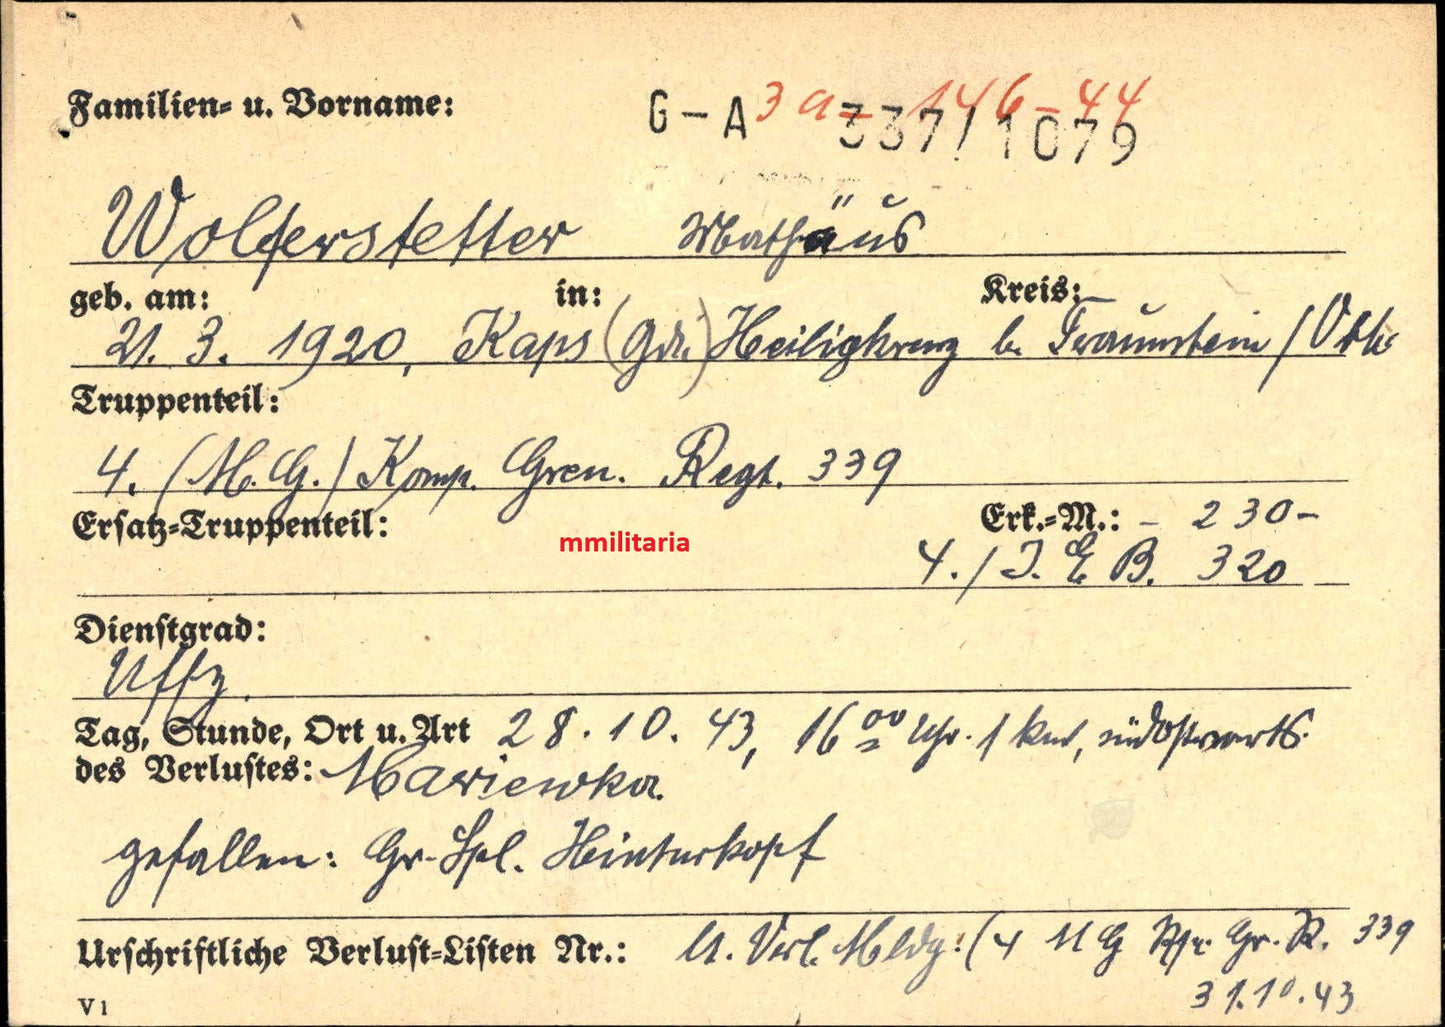 Familien- u. Vorname:
G-A 337/1079
3a-146-44
Wolferstetter Mathäus
geb. am: in: Kreis:
21. 3. 1920, Kaps (Gde.) Heiligkreuz b. Traunstein /
Truppenteil:
4. (M.G.) Komp. Gren. Regt. 339
Ersatz-Truppenteil: Erk.-M.: - 230 -
mmilitaria
4./J.E.B. 320
Dienstgrad:
Uffz.
Tag, Stunde, Ort u. Art 28.10.43, 16 00 Uhr. 1 km, südostwärts
des Verlustes: Mariewka
gefallen: Gr. Spl. Hinterkopf
Urschriftliche Verlust-Listen Nr.: U. Verl. Meldg: (4 MG Kp. Gr. R. 339
31.10.43
V1